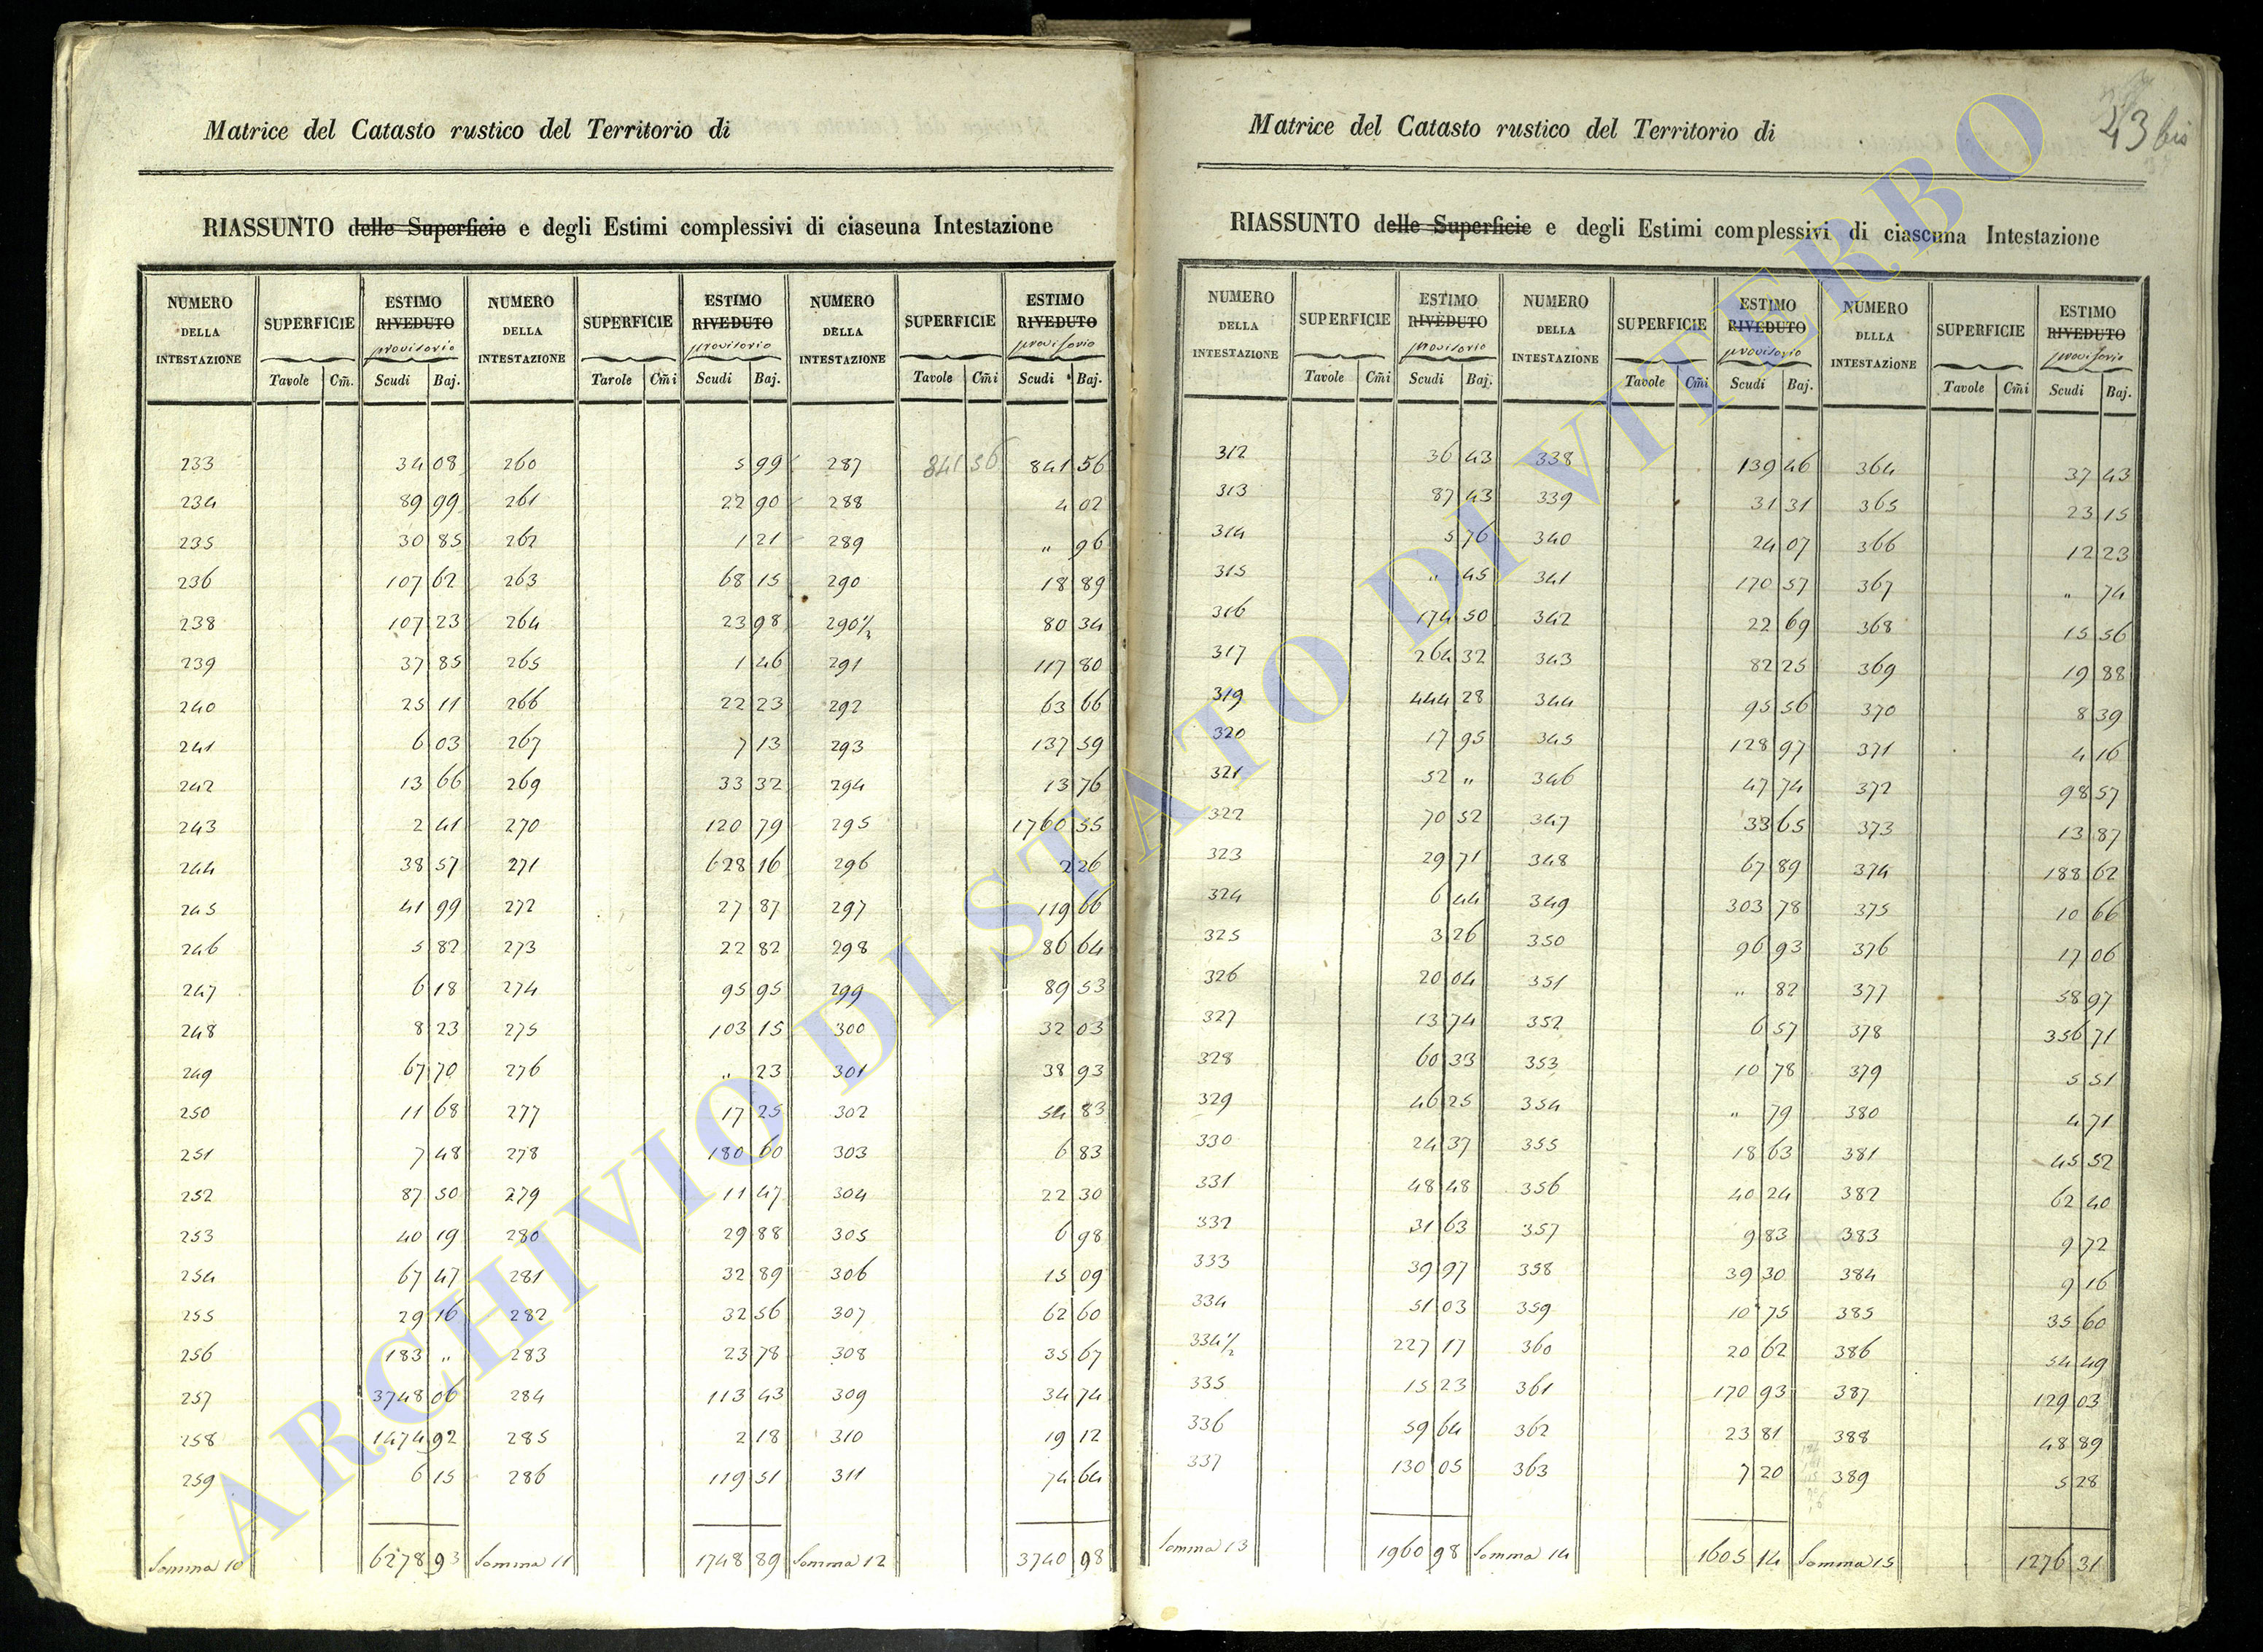 Matrice del Catasto rustico del Territorio di
RIASSUNTO delle Superficie e degli Estimi complessivi di ciascuna Intestazione
NUMERO DELLA INTESTAZIONE SUPERFICIE ESTIMO RIVEDUTO provisorio NUMERO DELLA INTESTAZIONE SUPERFICIE ESTIMO RIVEDUTO provisorio NUMERO DELLA INTESTAZIONE SUPERFICIE ESTIMO RIVEDUTO provisorio
Tavole Cm̃. Scudi Baj. Tavole Cm̃i Scudi Baj. Tavole Cm̃i Scudi Baj.
233 34 08 260 5 99 287 841 56 841 56
234 89 99 261 22 90 288 4 02
235 30 85 262 1 21 289 " 96
236 107 62 263 68 15 290 18 89
238 107 23 264 23 98 290 1/2 80 34
239 37 85 265 1 46 291 117 80
240 25 11 266 22 23 292 63 66
241 6 03 267 7 13 293 137 59
242 13 66 269 33 32 294 13 76
243 2 41 270 120 79 295 1760 55
244 38 57 271 628 16 296 2 26
245 41 99 272 27 87 297 119 66
246 5 82 273 22 82 298 86 64
247 6 18 274 95 95 299 89 53
248 8 23 275 103 15 300 32 03
249 67 70 276 " 23 301 38 93
250 11 68 277 17 25 302 54 83
251 7 48 278 180 60 303 6 83
252 87 50 279 11 47 304 22 30
253 40 19 280 29 88 305 6 98
254 67 47 281 32 89 306 15 09
255 29 16 282 32 56 307 62 60
256 183 " 283 23 78 308 35 67
257 3748 06 284 113 43 309 34 74
258 1474 92 285 2 18 310 19 12
259 6 15 286 119 51 311 74 64
Somma 10 6278 93 Somma 11 1748 89 Somma 12 3740 98
43 bis
Matrice del Catasto rustico del Territorio di
RIASSUNTO delle Superficie e degli Estimi complessivi di ciascuna Intestazione
NUMERO DELLA INTESTAZIONE SUPERFICIE ESTIMO RIVEDUTO provisorio NUMERO DELLA INTESTAZIONE SUPERFICIE ESTIMO RIVEDUTO provisorio NUMERO DLLLA INTESTAZIONE SUPERFICIE ESTIMO RIVEDUTO provisorio
Tavole Cm̃i Scudi Baj. Tavole Cm̃i Scudi Baj. Tavole Cm̃i Scudi Baj.
312 36 43 338 139 46 364 37 43
313 87 43 339 31 31 365 23 15
314 5 76 340 24 07 366 12 23
315 " 45 341 170 57 367 " 74
316 174 50 342 22 69 368 15 56
317 264 32 343 82 25 369 19 88
319 444 28 344 95 56 370 8 39
320 17 95 345 128 97 371 4 16
321 52 " 346 47 74 372 98 57
322 70 52 347 33 65 373 13 87
323 29 71 348 67 89 374 188 62
324 6 44 349 303 78 375 10 66
325 3 26 350 96 93 376 17 06
326 20 04 351 " 82 377 58 97
327 13 74 352 6 57 378 356 71
328 60 33 353 10 78 379 5 51
329 46 25 354 " 79 380 4 71
330 24 37 355 18 63 381 45 52
331 48 48 356 40 24 382 62 40
332 31 63 357 9 83 383 9 72
333 39 97 358 39 30 384 9 16
334 51 03 359 10 75 385 35 60
334 1/2 227 17 360 20 62 386 54 49
335 15 23 361 170 93 387 129 03
336 59 64 362 23 81 388 48 89
337 130 05 363 7 20 389 5 28
Somma 13 1960 98 Somma 14 1605 14 Somma 15 1276 31
ARCHIVIO DI STATO DI VITERBO